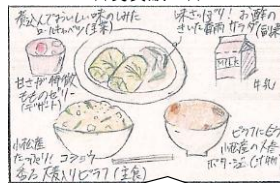 煮込んでおいしい味のしみた
ロールキャベツ(主菜)
味さっぱり!お酢の
きいた春雨サラダ(副菜)
甘さが特徴
もものゼリー
(デザート)
MILK
牛乳
小松菜
たっぷり!コンソメ
香る大麦入りピラフ(主食)
ピラフに
小松菜の
ポタージュ(汁物)